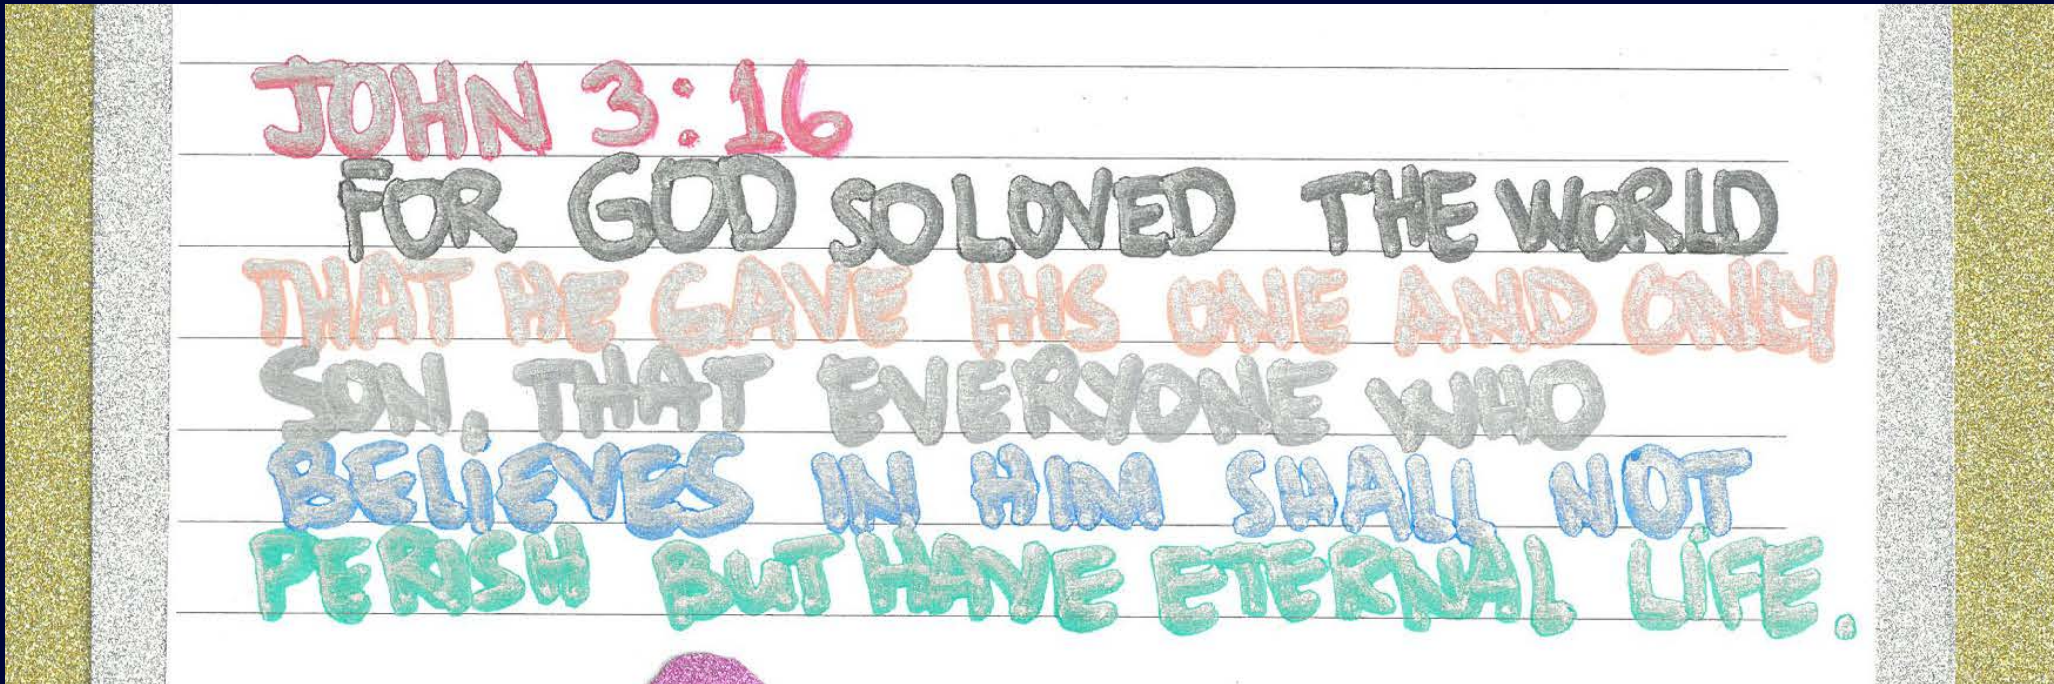 JOHN 3:16
FOR GOD SO LOVED THE WORLD
THAT HE GAVE HIS ONE AND ONLY
SON, THAT EVERYONE WHO
BELiEVES IN HIM SHALL NOT
PERISH BUT HAVE ETERNAL LiFE.